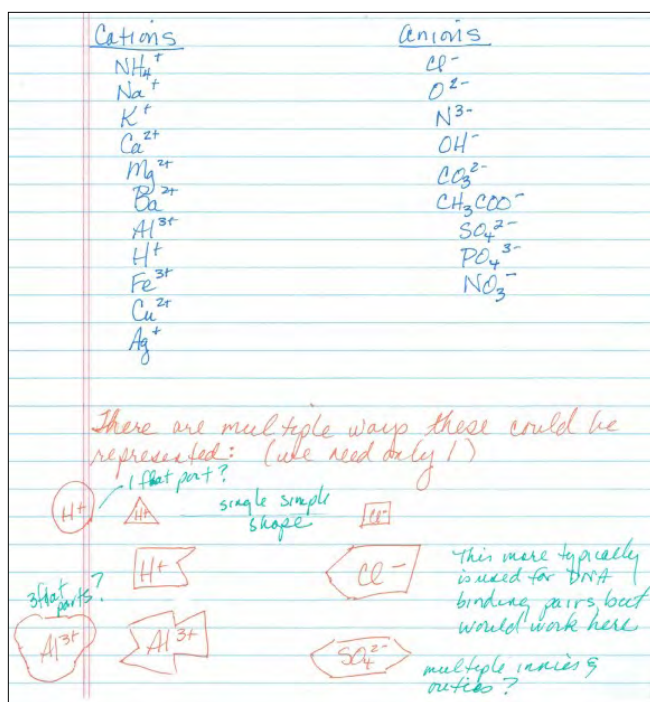 Cations
Anions
NH₄⁺
Cl⁻
Na⁺
O²⁻
K⁺
N³⁻
Ca²⁺
OH⁻
Mg²⁺
CO₃²⁻
Ba²⁺
CH₃COO⁻
Al³⁺
SO₄²⁻
H⁺
PO₄³⁻
Fe³⁺
NO₃⁻
Cu²⁺
Ag⁺
There are multiple ways these could be
represented: (we need only 1)
1 flat part?
H+
H+
single simple
shape
Cl⁻
H+
Cl⁻
This more typically
is used for DNA
binding pairs, but
would work here
3 flat
parts?
Al³⁺
Al³⁺
SO₄²⁻
multiple innies &
outies?